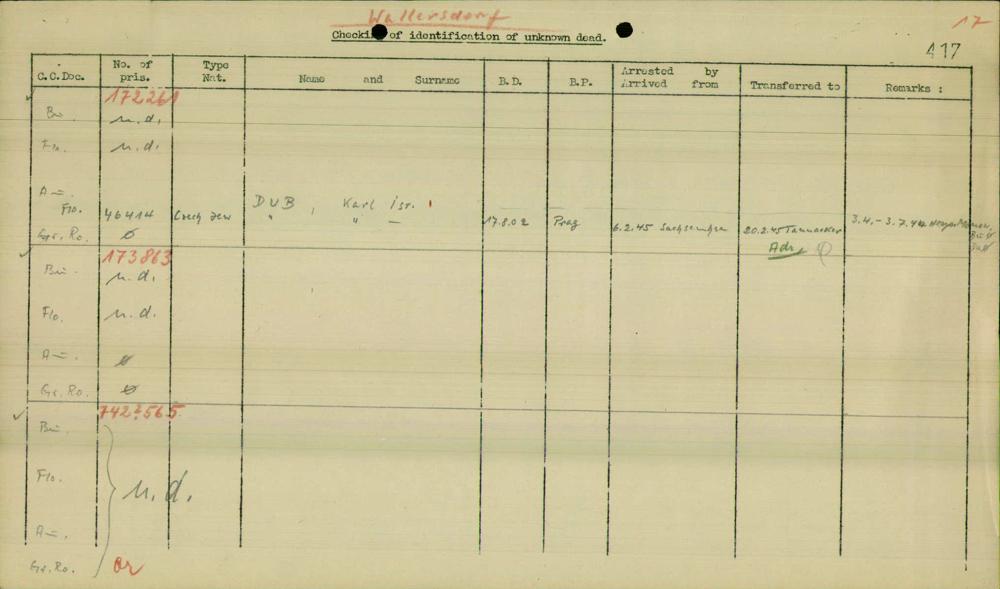 Wallersdorf
17
Checking of identification of unknown dead.
417
C.C.Doc. No. of pris. Type Nat. Name and Surname B.D. B.P. Arrested by Arrived from Transferred to Remarks :
172261
Bu. n.d.
Flo. n.d.
A=. DUB, Karl Isr.
Flo. 46414 Czech Jew " " — 17.8.02 Prag 6.2.45 Sachsenhsn 20.2.45 3.4.-3.7.
Gr. Ro. ø Adr.
173863
Bu. n.d.
Flo. n.d.
A=. ø
Gr. Ro. ø
742?565
Bu.
Flo. n.d.
A=.
Gr. Ro. or